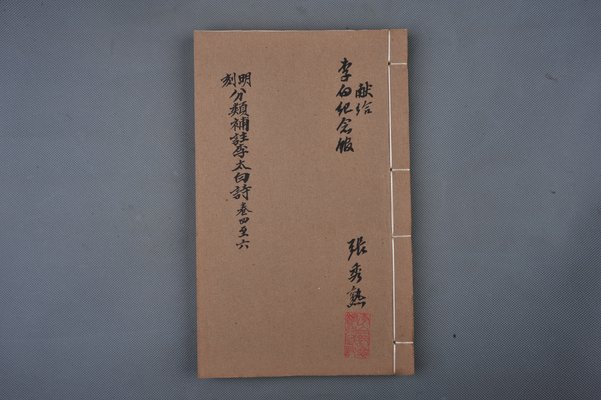 献给
李白纪念館
張秀熟
明刻
分類補註李太白詩 卷四至六